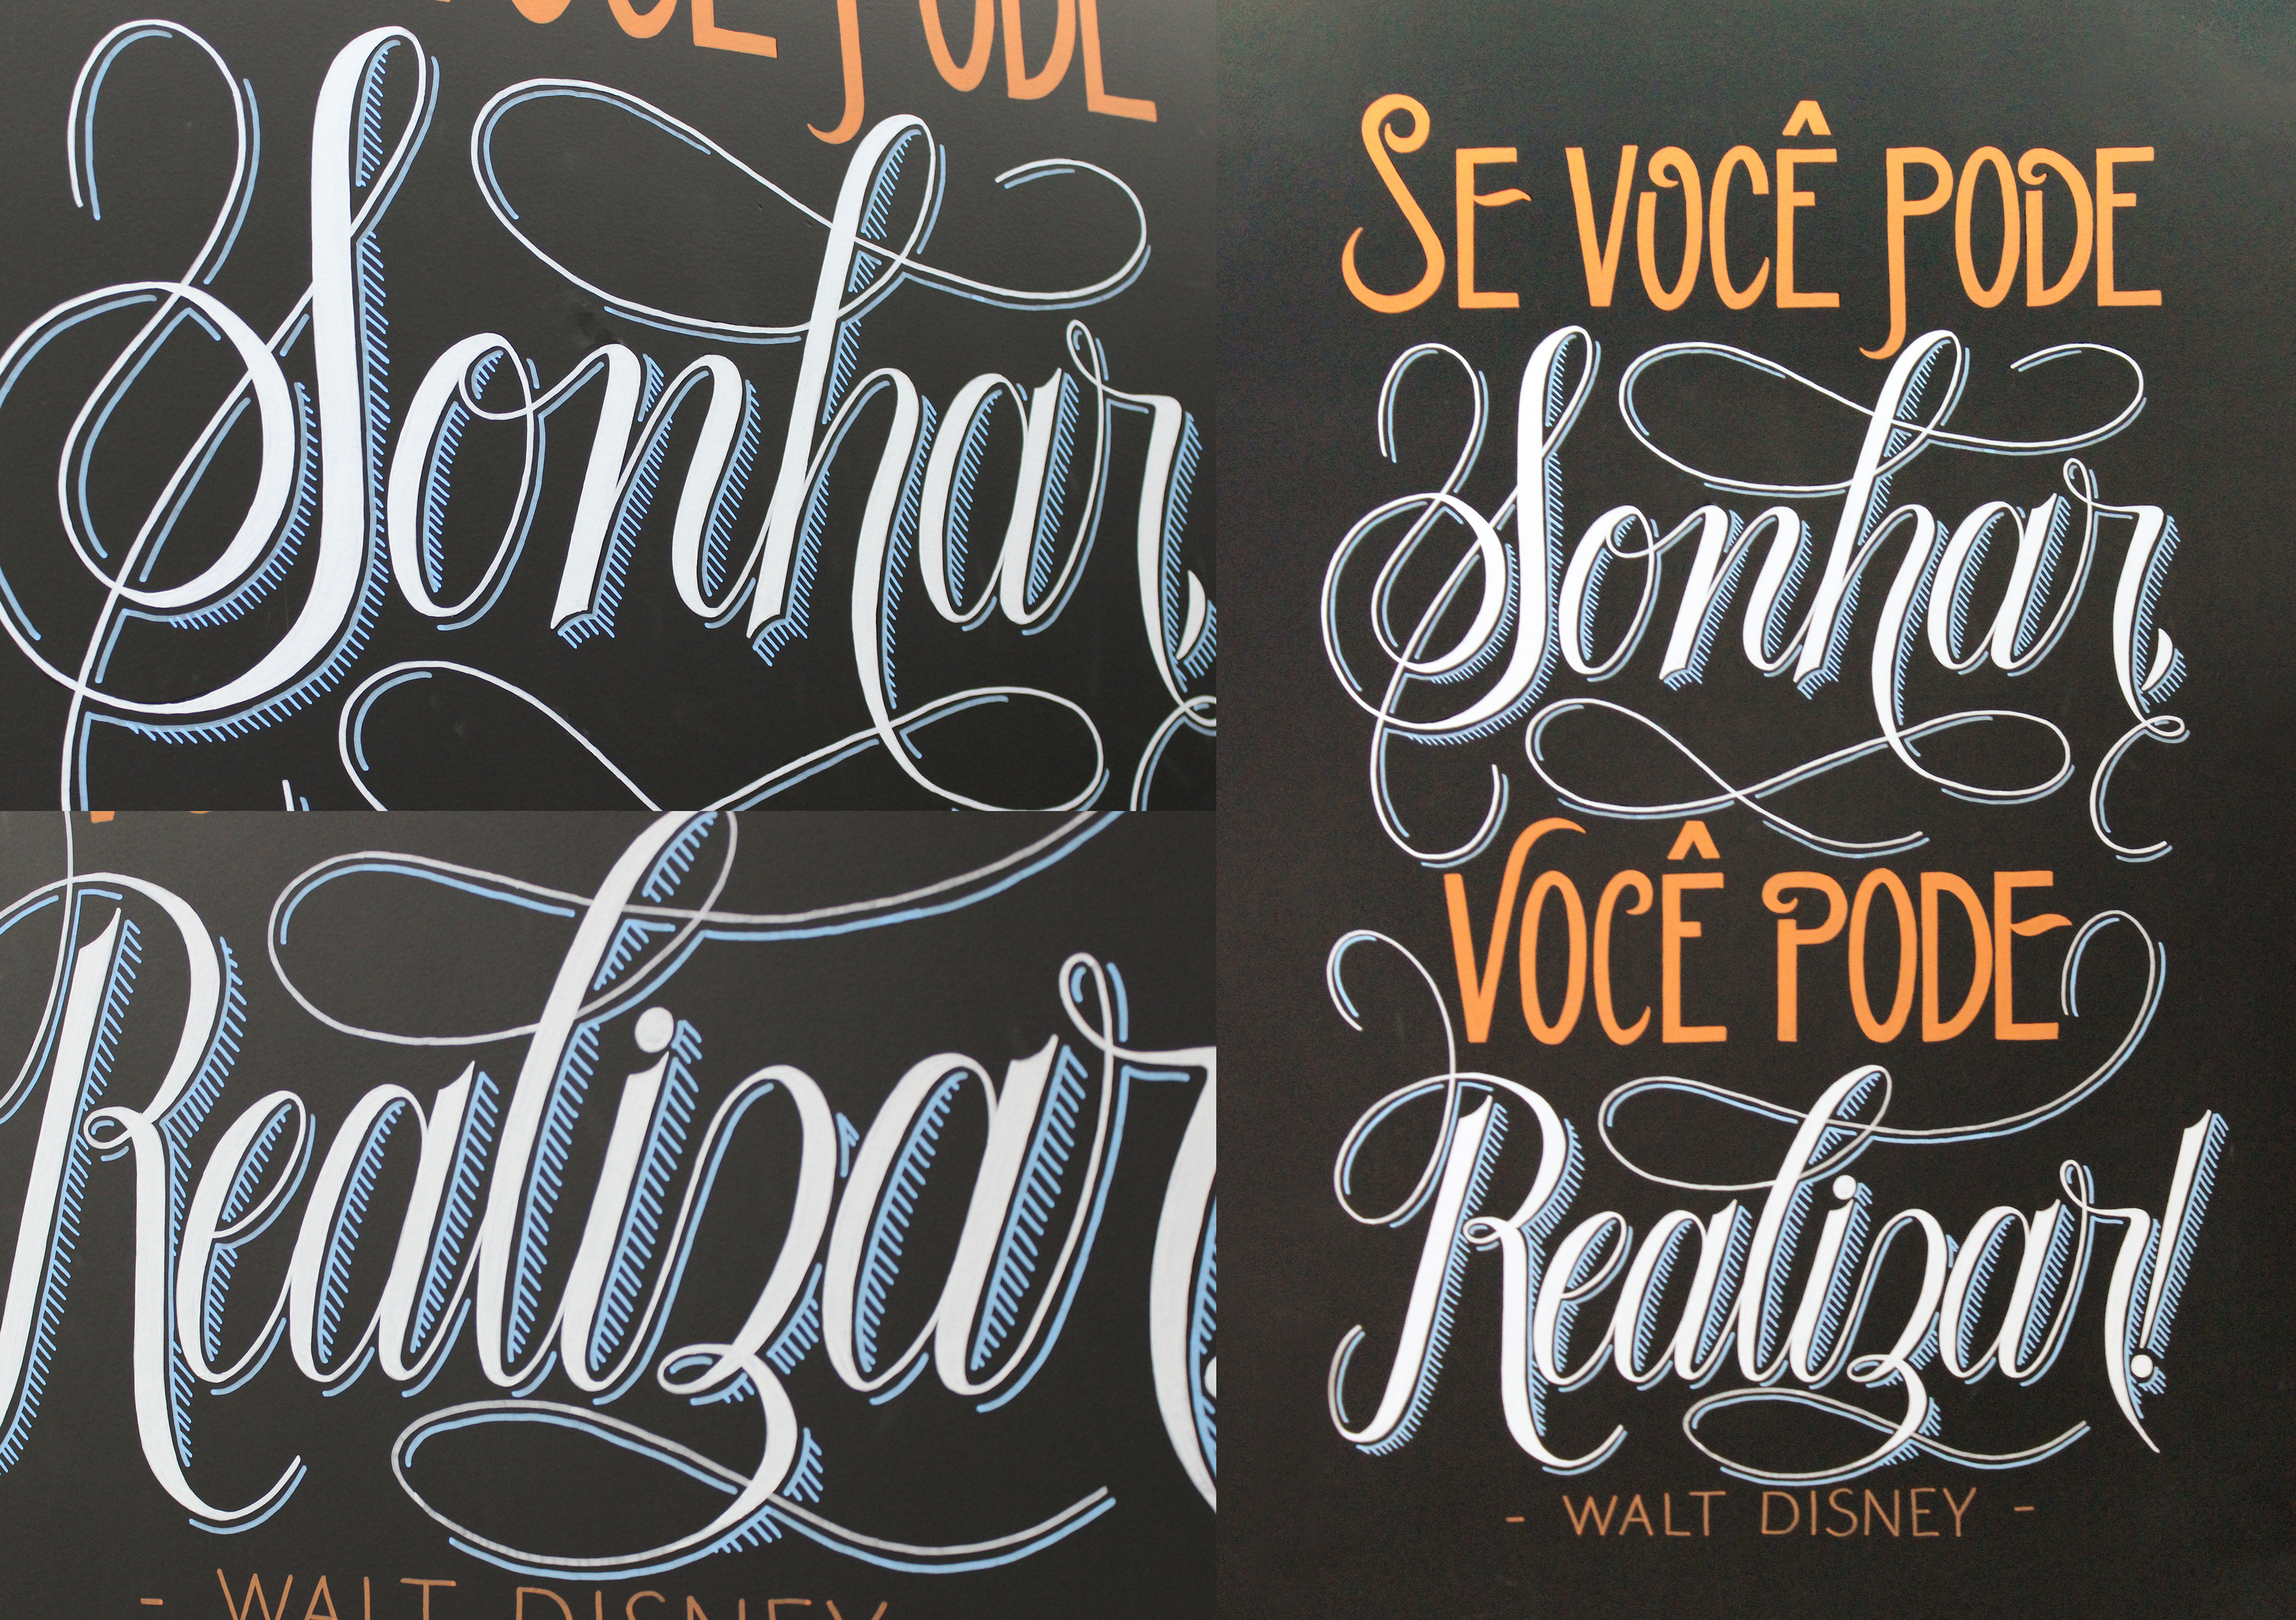 VOCÊ PODE
Sonhar,
Realizar
- WALT DISNEY
SE VOCÊ PODE
Sonhar,
VOCÊ PODE
Realizar!
- WALT DISNEY -